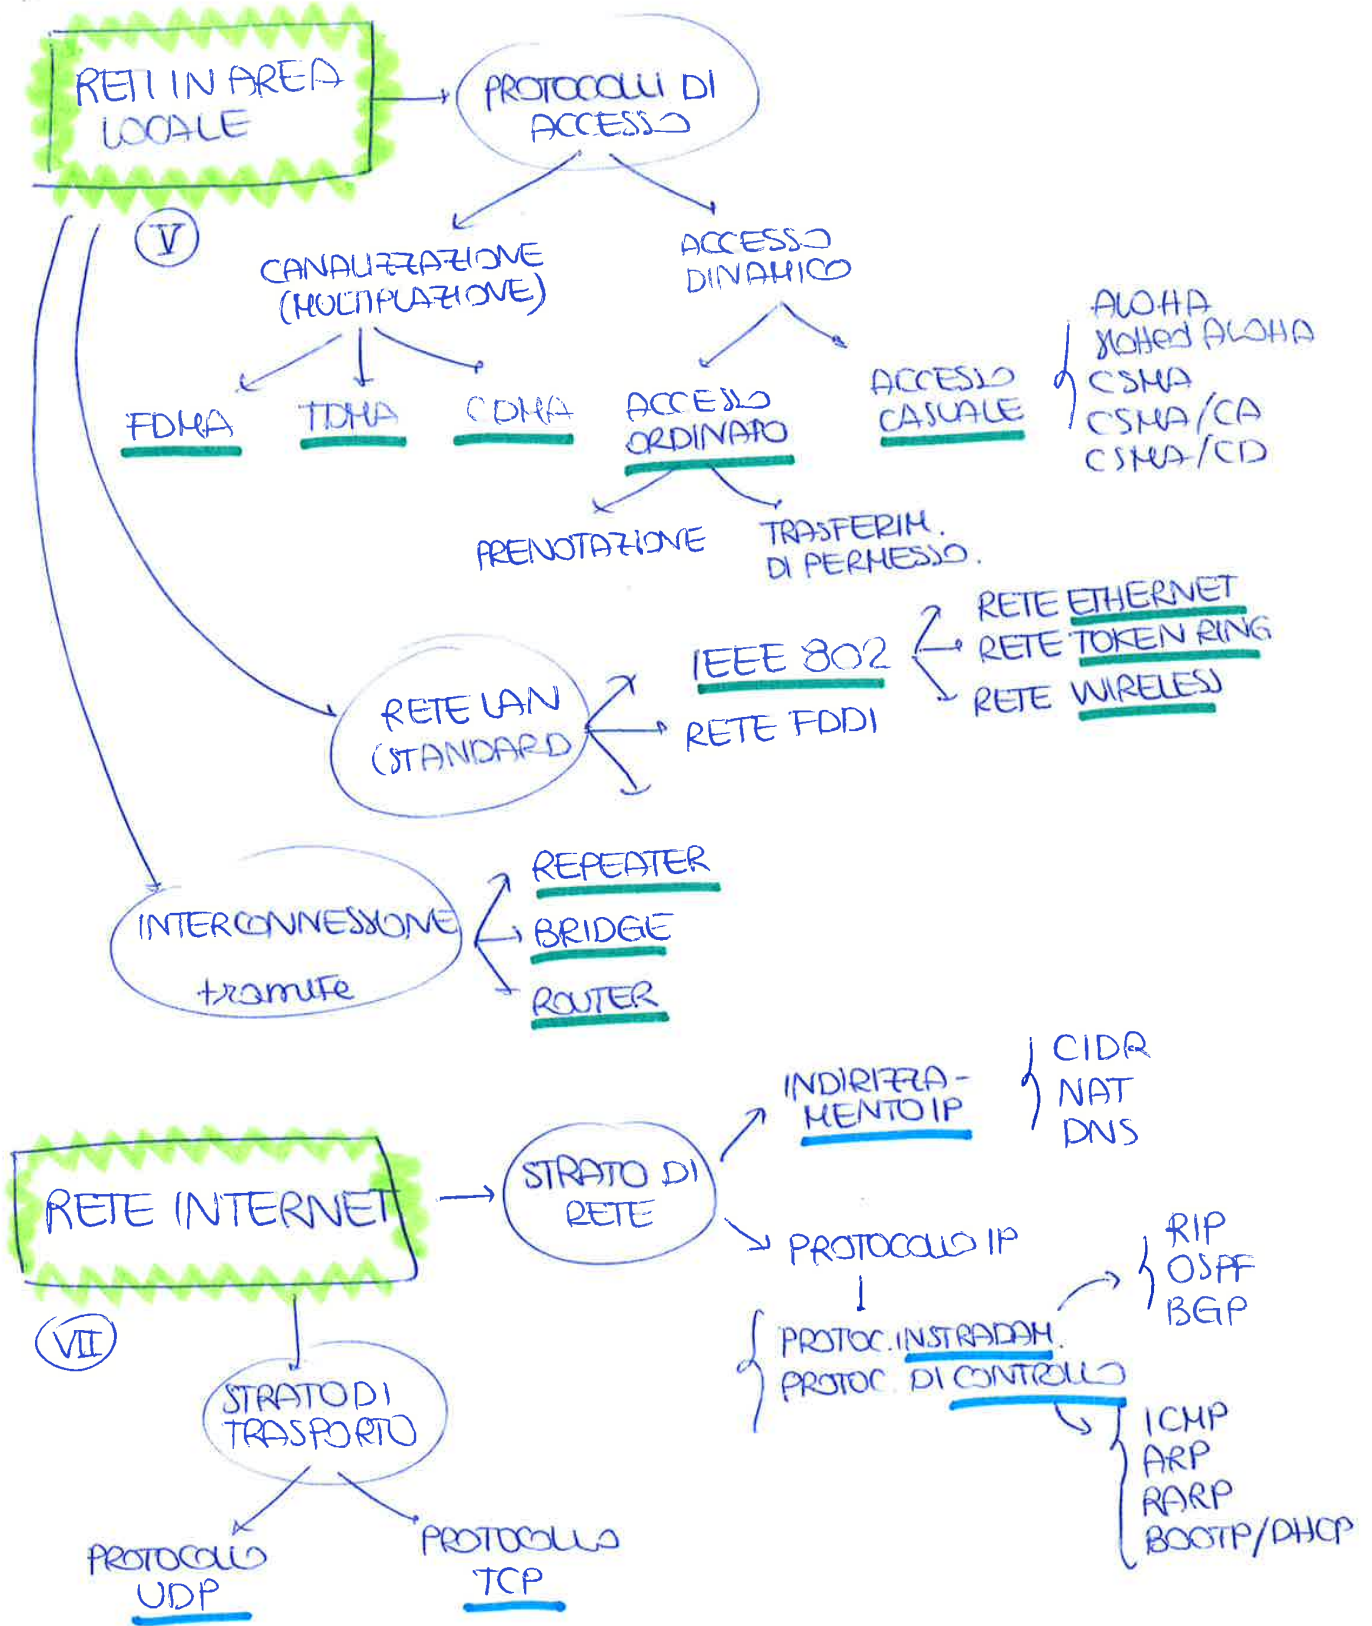 RETI IN AREA
LOCALE
PROTOCOLLI DI
ACCESSO
V
CANALIZZAZIONE
(MULTIPLAZIONE)
ACCESSO
DINAMICO
FDMA
TDMA
CDMA
ACCESSO
ORDINATO
ACCESSO
CASUALE
ALOHA
slotted ALOHA
CSMA
CSMA/CA
CSMA/CD
PRENOTAZIONE
TRASFERIM.
DI PERMESSO.
RETE LAN
(STANDARD
IEEE 802
RETE FDDI
RETE ETHERNET
RETE TOKEN RING
RETE WIRELESS
INTERCONNESSIONE
tramite
REPEATER
BRIDGE
ROUTER
RETE INTERNET
VII
STRATO DI
RETE
INDIRIZZA-
MENTO IP
CIDR
NAT
DNS
PROTOCOLLO IP
PROTOC. INSTRADAM.
PROTOC. DI CONTROLLO
RIP
OSPF
BGP
ICMP
ARP
RARP
BOOTP/DHCP
STRATO DI
TRASPORTO
PROTOCOLLO
UDP
PROTOCOLLO
TCP